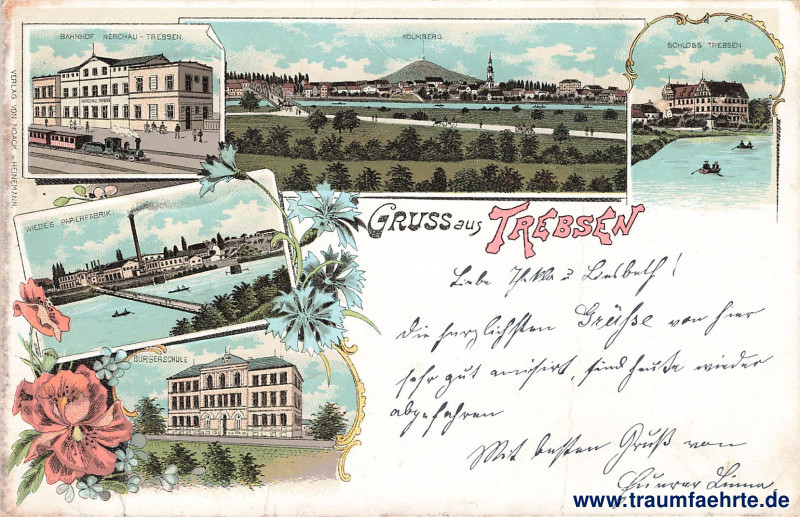 BAHNHOF NERCHAU-TREBSEN.
KOLMBERG.
SCHLOSS TREBSEN.
NERCHAU-TREBSEN
VERLAG VON HORCK u. HEINEMANN
WIEDES PAPIERFABRIK.
GRUSS aus TREBSEN
BÜRGERSCHULE
Liebe Thekla u Liesbeth!
Die herzlichsten Grüße von hier
sehr gut amisirt, sind heute wieder
abgefahren
Mit besten Gruß von
www.traumfaehrte.de